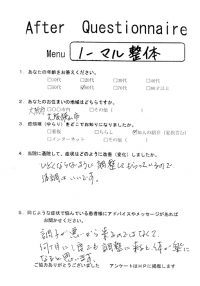 After Questionnaire
Menu ノーマル整体
1．あなたの年齢をお答えください。
□10代 □20代 □30代 □40代
□50代 □60代 □70代 □80才以上
2．あなたのお住まいの地域はどちらですか。
□その他（ ）
3．症椎庵（ゆらり）をどこでお知りになりましたか。
□看板 □ちらし □知人の紹介
□インターネット □その他（ ）
4．当院に通院して、症状はどのように改善（変化）しましたか。
体調はいいです。
5．同じような症状で悩んでいる患者様にアドバイスやメッセージがあれば
お聞かせください。
調子が悪いから来るのではなくて、
何ケ月に1度でも調整に来ると体が楽に
なると思います。
ご協力ありがとうございました アンケートはHPに掲載します